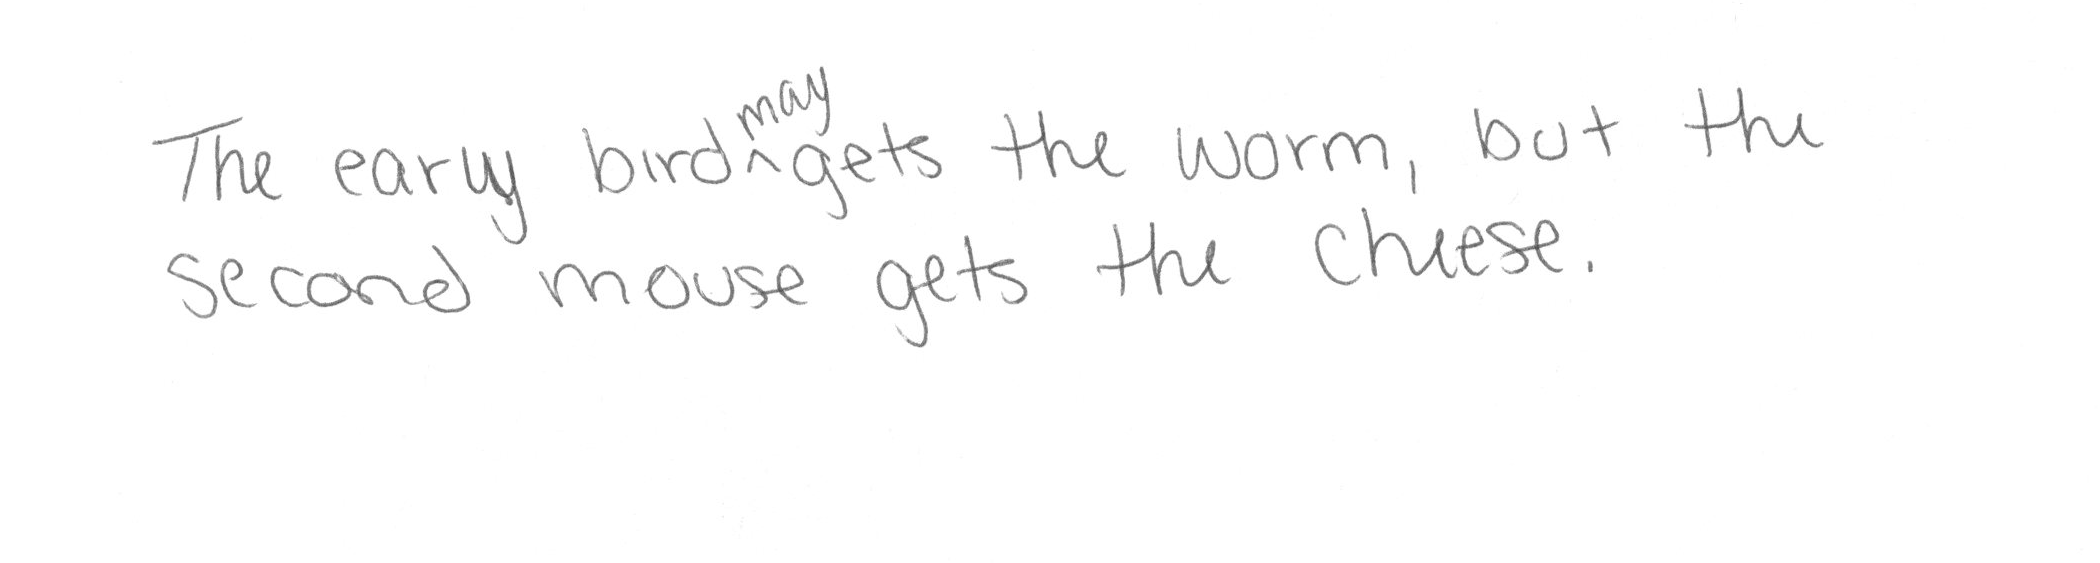 The early bird may gets the worm, but the
second mouse gets the cheese.